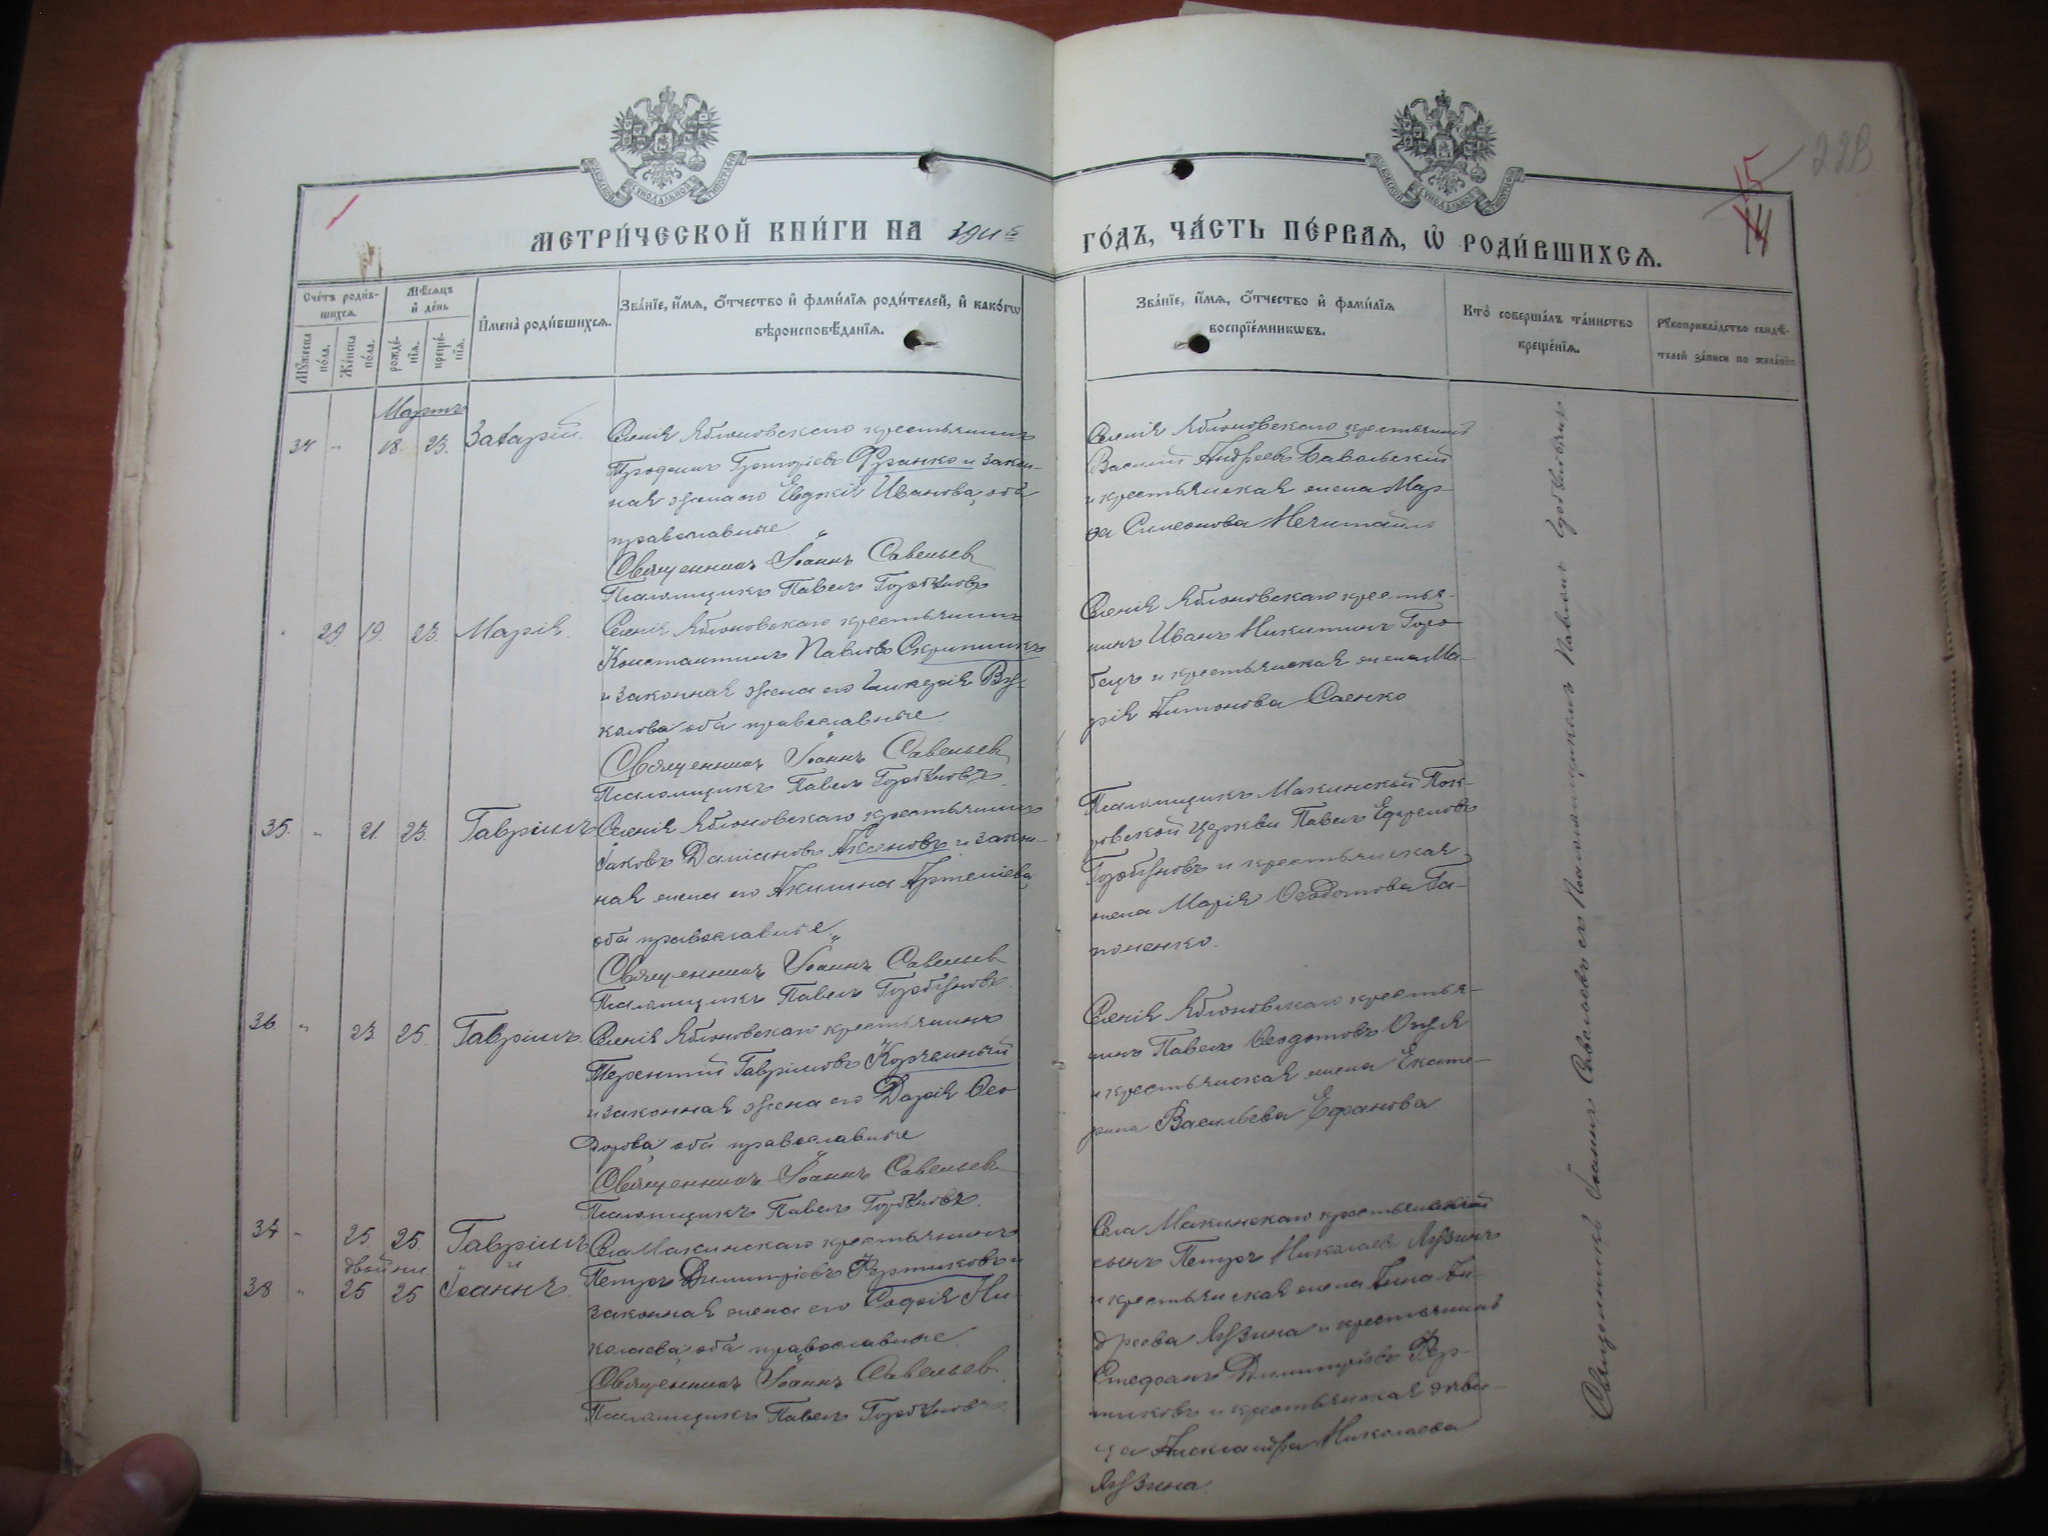 МЕТРИ́ЧЕСКОЙ КНИ́ГИ НА 1911 ГО́ДЪ, ЧА́СТЬ ПЕ́РВАѦ, Ѡ҆ РОДИ́ВШИХСѦ.
15
14
229
Сче́тъ роди́в-
шихсѧ.
Мѣ́сѧцъ
и҆ де́нь
И҆мена̀ роди́вшихсѧ.
Зва́нїе, и҆́мѧ, ѻ҆́тчество и҆ фами́лїѧ роди́телей, и҆ како́гѡ
вѣроисповѣ́данїѧ.
Зва́нїе, и҆́мѧ, ѻ҆́тчество и҆ фами́лїѧ
воспрїе́мникѡвъ.
Кто̀ соверша́лъ та́инство
креще́нїѧ.
Рꙋкоприкла́дство свидѣ́-
телей за́писи по жела́нїю
Мꙋ́жеска
по́ла.
Же́нска
по́ла.
рожде́-
нїѧ.
креще́-
нїѧ.
Мартъ
34 " 18. 23. Захарій.
Селенія Яблоновскаго крестьянинъ
Григоріевъ Франко и закон-
ная жена его Евдокія Иванова, оба
православные.
Священникъ Іоаннъ Савельевъ
Псаломщикъ Павелъ Горбуновъ
Селенія Яблоновскаго крестьянинъ
Василій Андреевъ
и крестьянская жена Мар-
ѳа Симеонова Нечитайло
29 19. 23. Марія.
Селенія Яблоновскаго крестьянинъ
Константинъ Павловъ Скрипникъ
и законная жена его Гликерія Ву-
колова оба православные
Священникъ Іоаннъ Савельевъ
Псаломщикъ Павелъ Горбуновъ
Селенія Яблоновскаго крестья-
нинъ Иванъ Никитинъ Горо-
бецъ и крестьянская жена Ма-
рія Антонова Саенко
35. " 21. 23. Гавріилъ
Селенія Яблоновскаго крестьянинъ
Іаковъ Даміановъ Аксеновъ и закон-
ная жена его Акилина Артеміева
оба православные.
Священникъ Іоаннъ Савельевъ
Псаломщикъ Павелъ Горбуновъ
Псаломщикъ Макинской Пок-
ровской церкви Павелъ Ефремовъ
Горбуновъ и крестьянская
жена Марія Ѳеодотова Га-
поненко.
36. " 23 25. Гавріилъ.
Селенія Яблоновскаго крестьянинъ
Терентій Гавріиловъ Корчемный
и законная жена его Дарія Ѳео-
дорова оба православные
Священникъ Іоаннъ Савельевъ
Псаломщикъ Павелъ Горбуновъ.
Селенія Яблоновскаго крестья-
нинъ Павелъ Ѳеодотовъ
и крестьянская жена Екате-
рина Васильева Ефанова
37 " 25. 25. Гавріилъ
двойни
38 " 25 25 Іоаннъ.
Села Макинскаго крестьянинъ
Петръ Димитріевъ Фертиковъ и
законная жена его Софія Ни-
колаева оба православные.
Священникъ Іоаннъ Савельевъ.
Псаломщикъ Павелъ Горбуновъ.
Села Макинскаго крестьянскій
сынъ Петръ Николаевъ Лузинъ
и крестьянская жена Анна Ан-
дреева Лузина и крестьянинъ
Стефанъ Димитріевъ Фер-
тиковъ и крестьянская дѣви-
ца Александра Николаева
Лузина.
Священникъ Іоаннъ Савельевъ съ Псаломщикомъ Павломъ Горбуновымъ